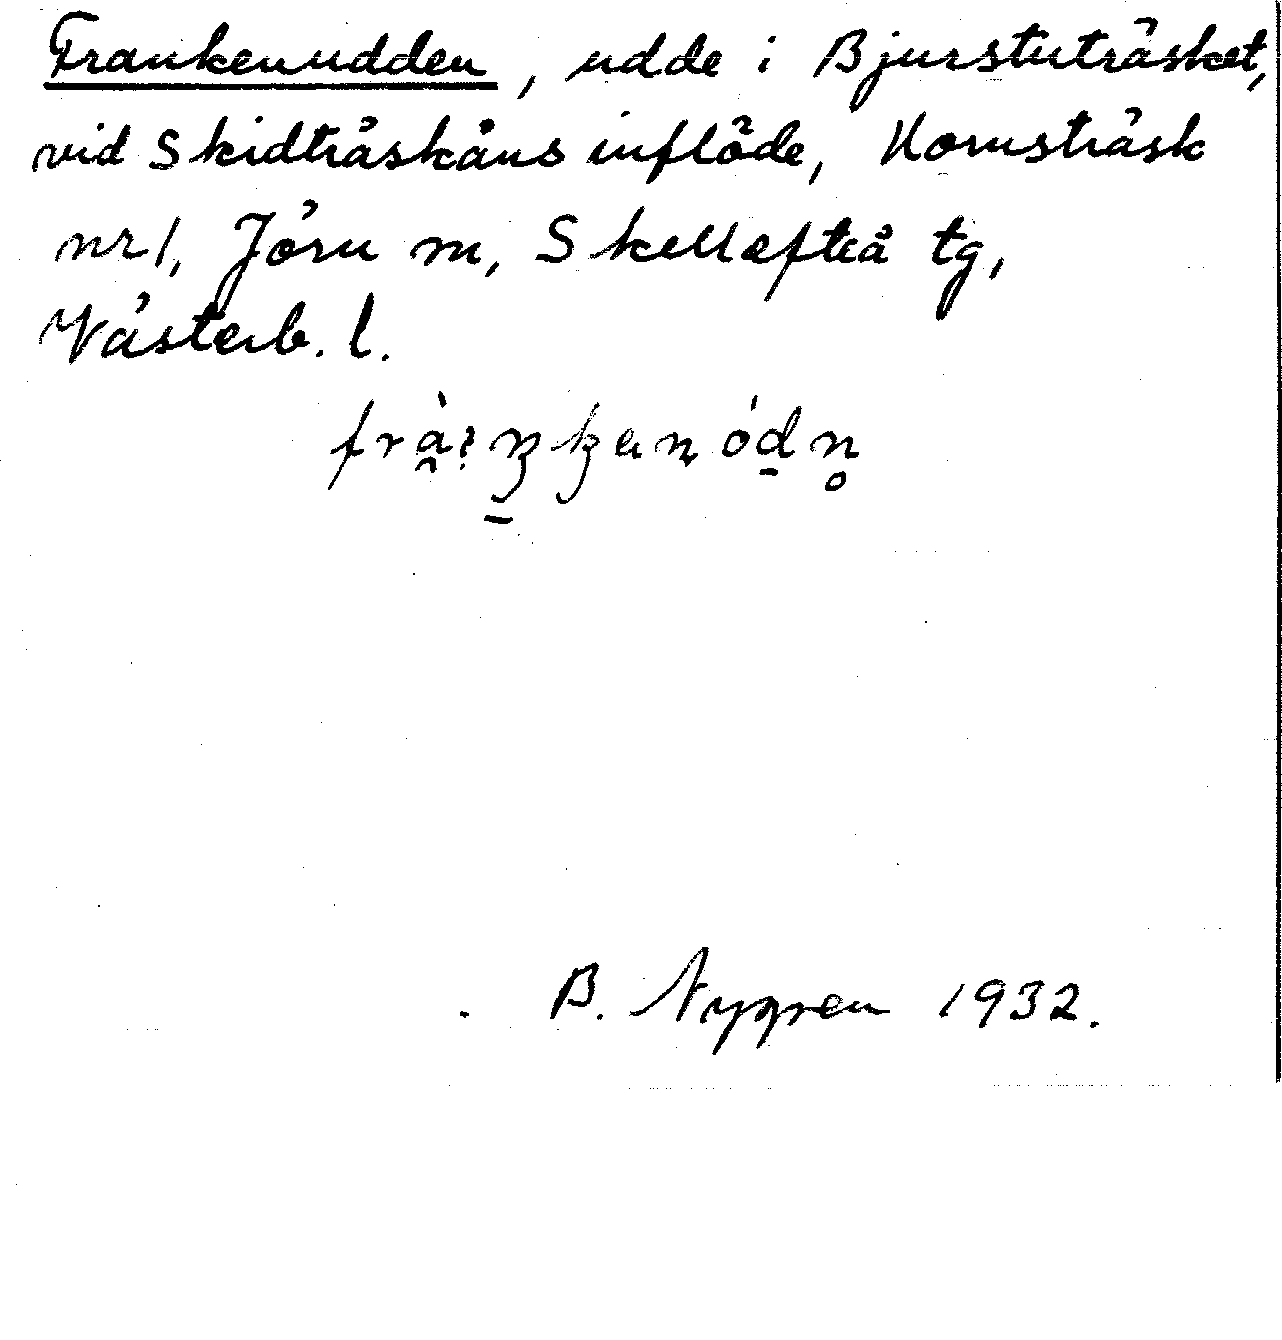 Frankenudden, udde i Bjursträsket,
vid Skidträskåns inflöde, Kornsträsk
nr 1, Jörn m, Skellefteå tg,
Västerb. l.
B. Nygren 1932.